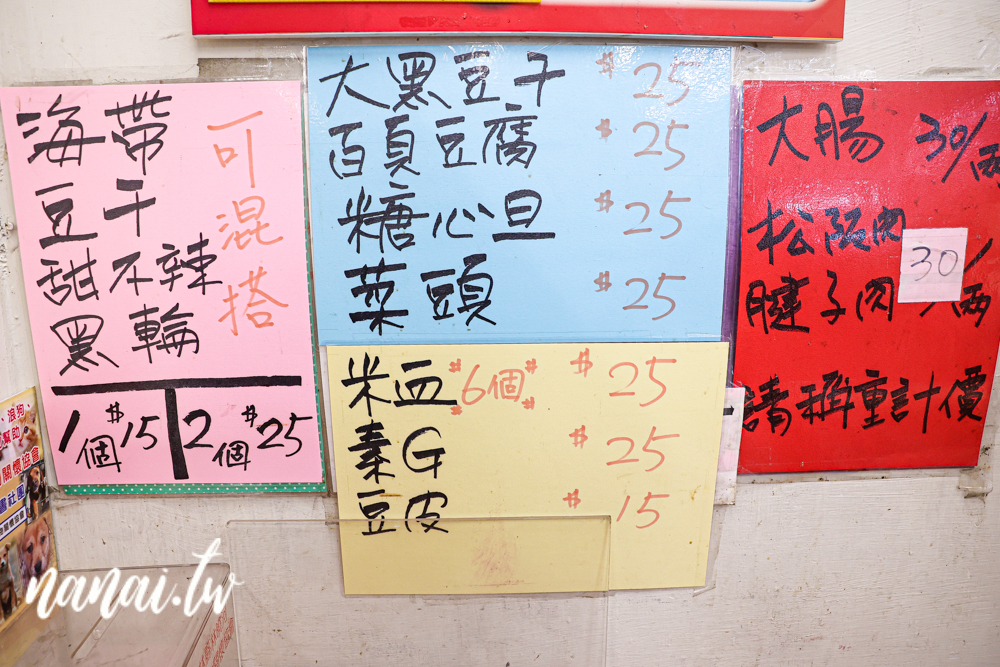 海帶
豆干
甜不辣
黑輪
可混搭
1個#15
2個#25
大黑豆干 #25
百頁豆腐 #25
糖心旦 #25
菜頭 #25
米血#6個# #25
素G #25
豆皮 #15
大腸 30/兩
松阪肉
腱子肉 30/兩
請稱重計價
浪狗
幫助
關懷協會
nanai.tw